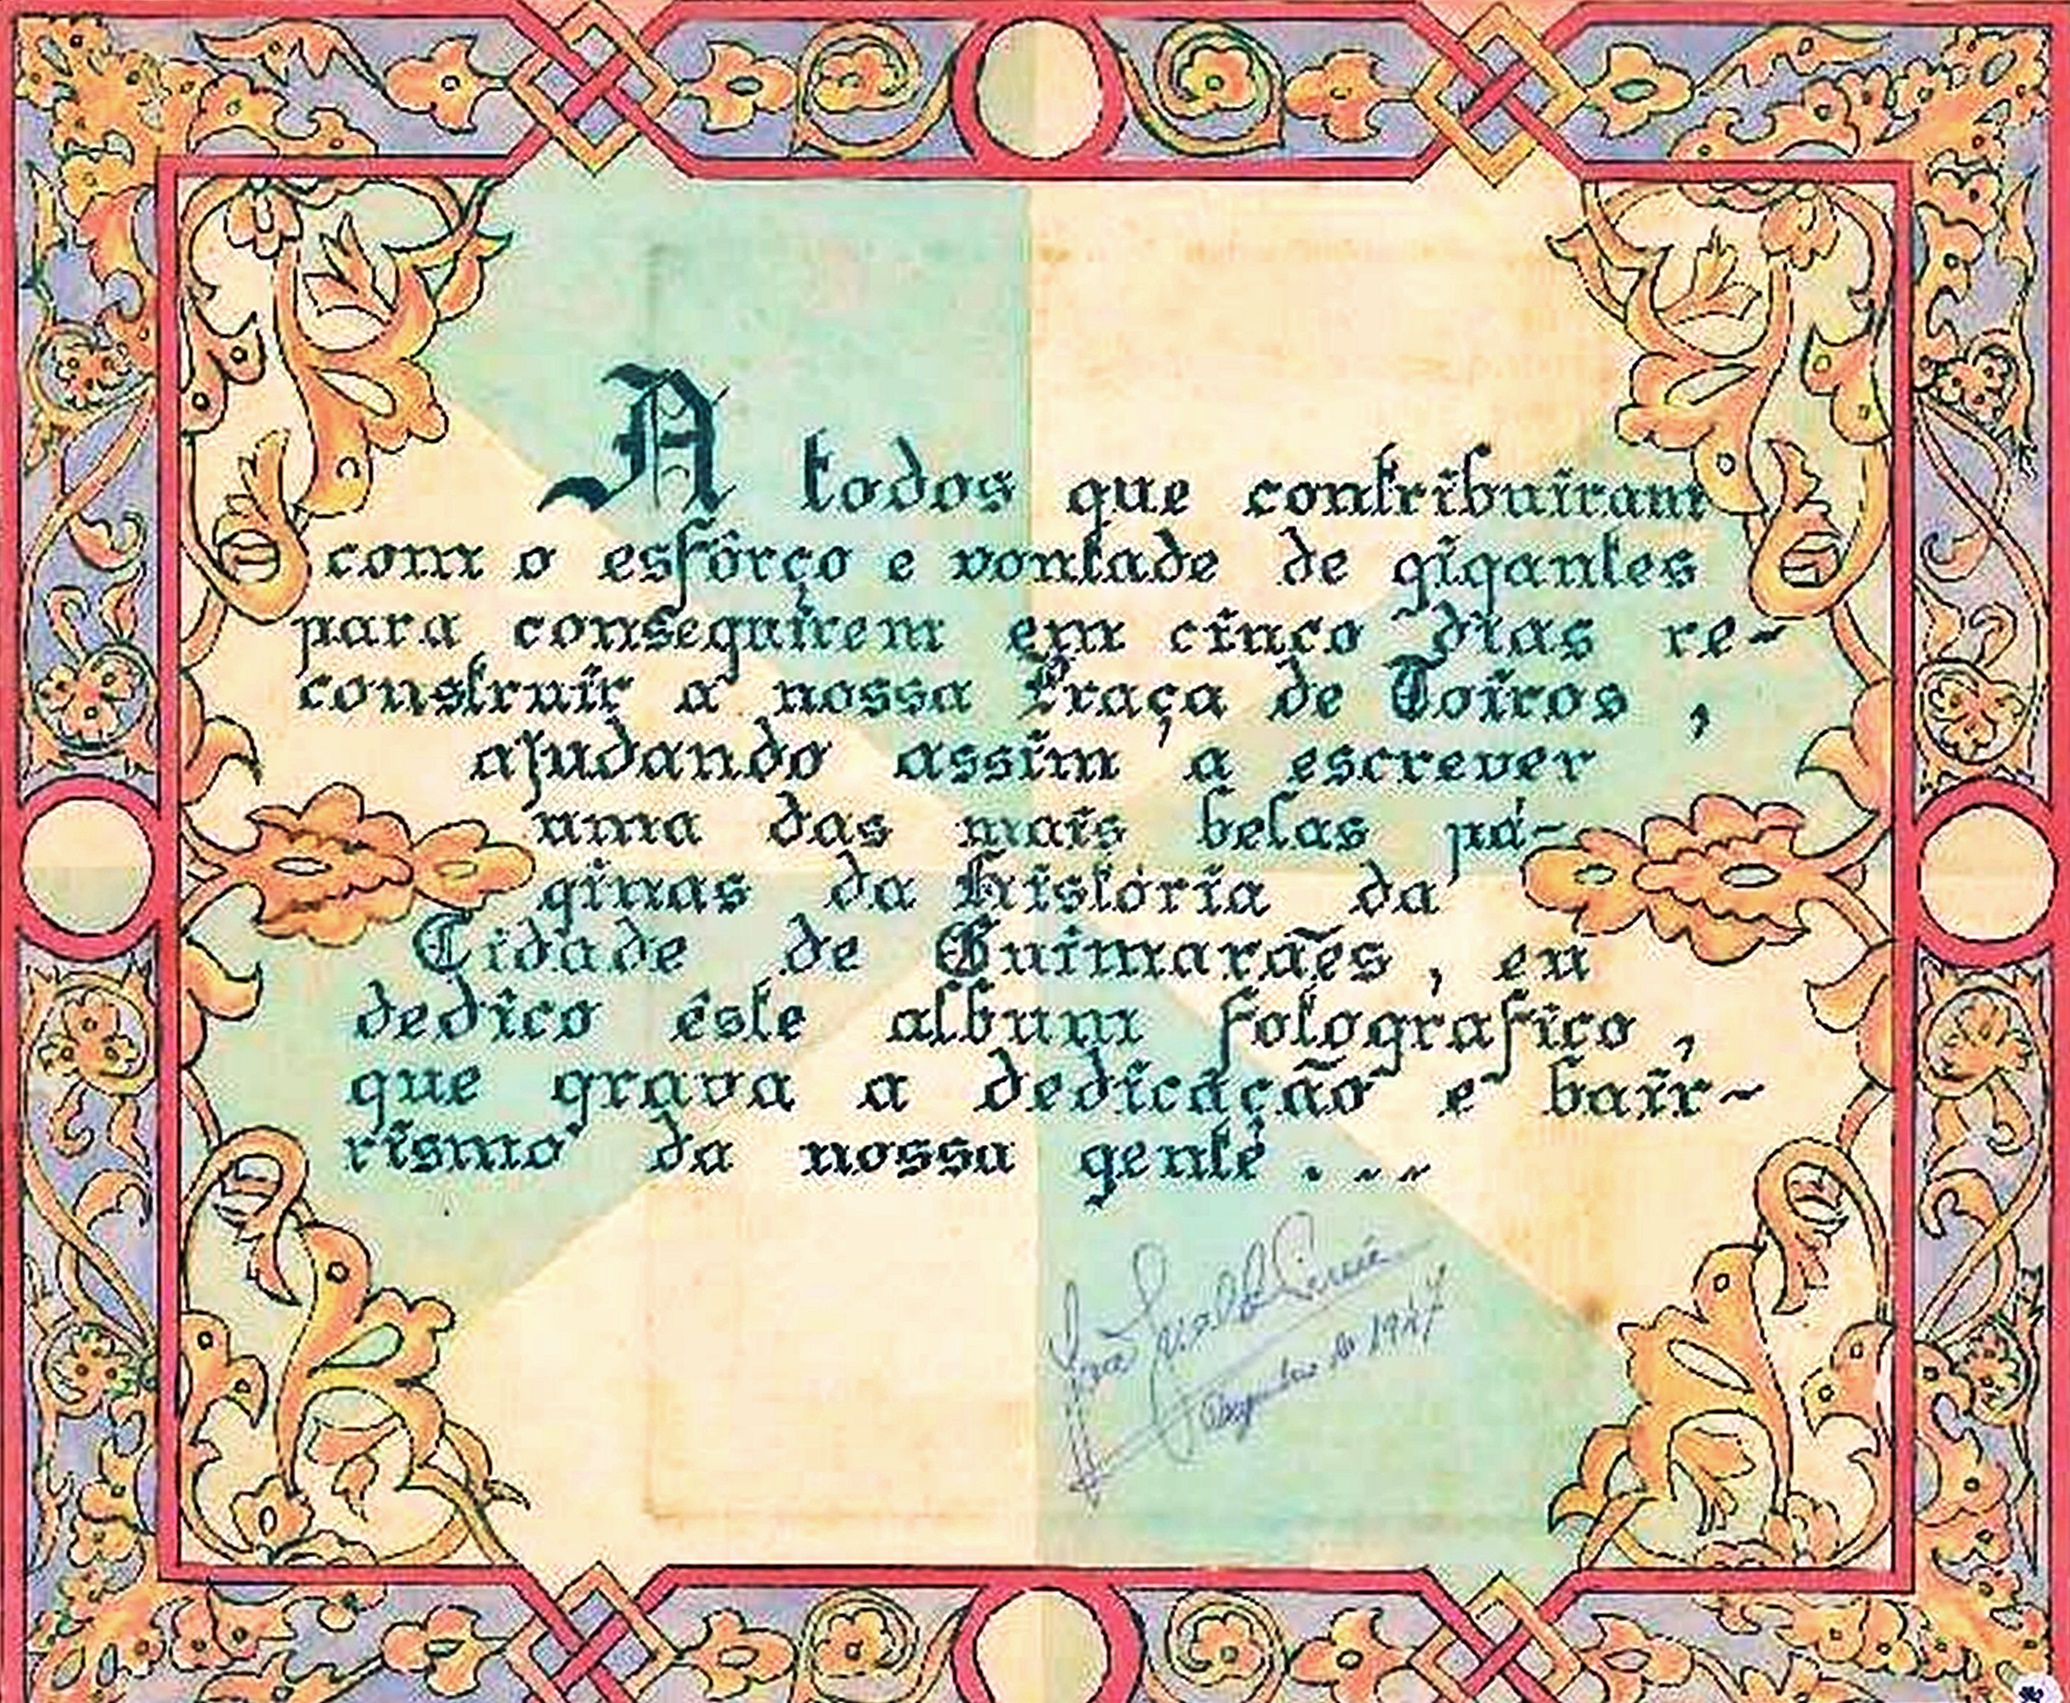 A todos que contribuiram
com o esfôrço e vontade de gigantes
para conseguirem em cinco dias re-
construir a nossa Praça de Toiros,
ajudando assim a escrever
uma das mais belas pá-
ginas da história da
Cidade de Guimarães, eu
dedico êste album fotografico,
que grava a dedicação e bair-
rismo da nossa gente....
de 1947